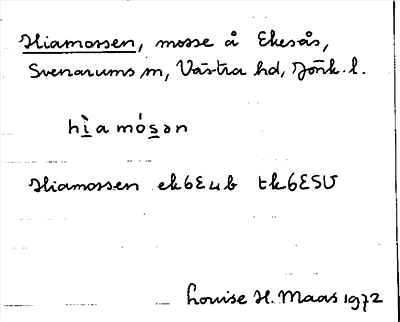 Hiamossen, mosse å Ekesås,
Svenarums sn, Västra hd, Jönk. l.
hìamós̲ən
Hiamossen ek6Eub tk6ESU
Louise H. Maas 1972